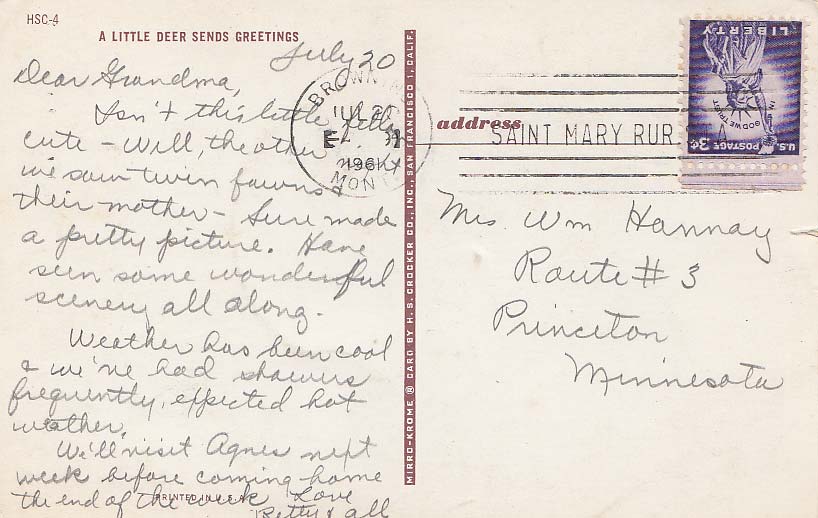 HSC-4
A LITTLE DEER SENDS GREETINGS
July 20
Dear Grandma,
Isn't this little fella
cute - Well, the other
we saw twin fawns &
their mother - Sure made
a pretty picture. Have
seen some wonderful
scenery all along.
Weather has been cool
& we've had showers
frequently, expected hot
weather.
We'll visit Agnes next
week before coming home
the end of the week Love
Betty & all
PRINTED IN U.S.A.
MIRRO-KROME ® CARD BY H. S. CROCKER CO., INC., SAN FRANCISCO 1, CALIF.
BROWNING
JUL 20
1961
MONT
SAINT MARY RUR STA
address
U.S. POSTAGE 3¢
IN GOD WE TRUST
LIBERTY
Mrs Wm Hannay
Route # 3
Princeton
Minnesota